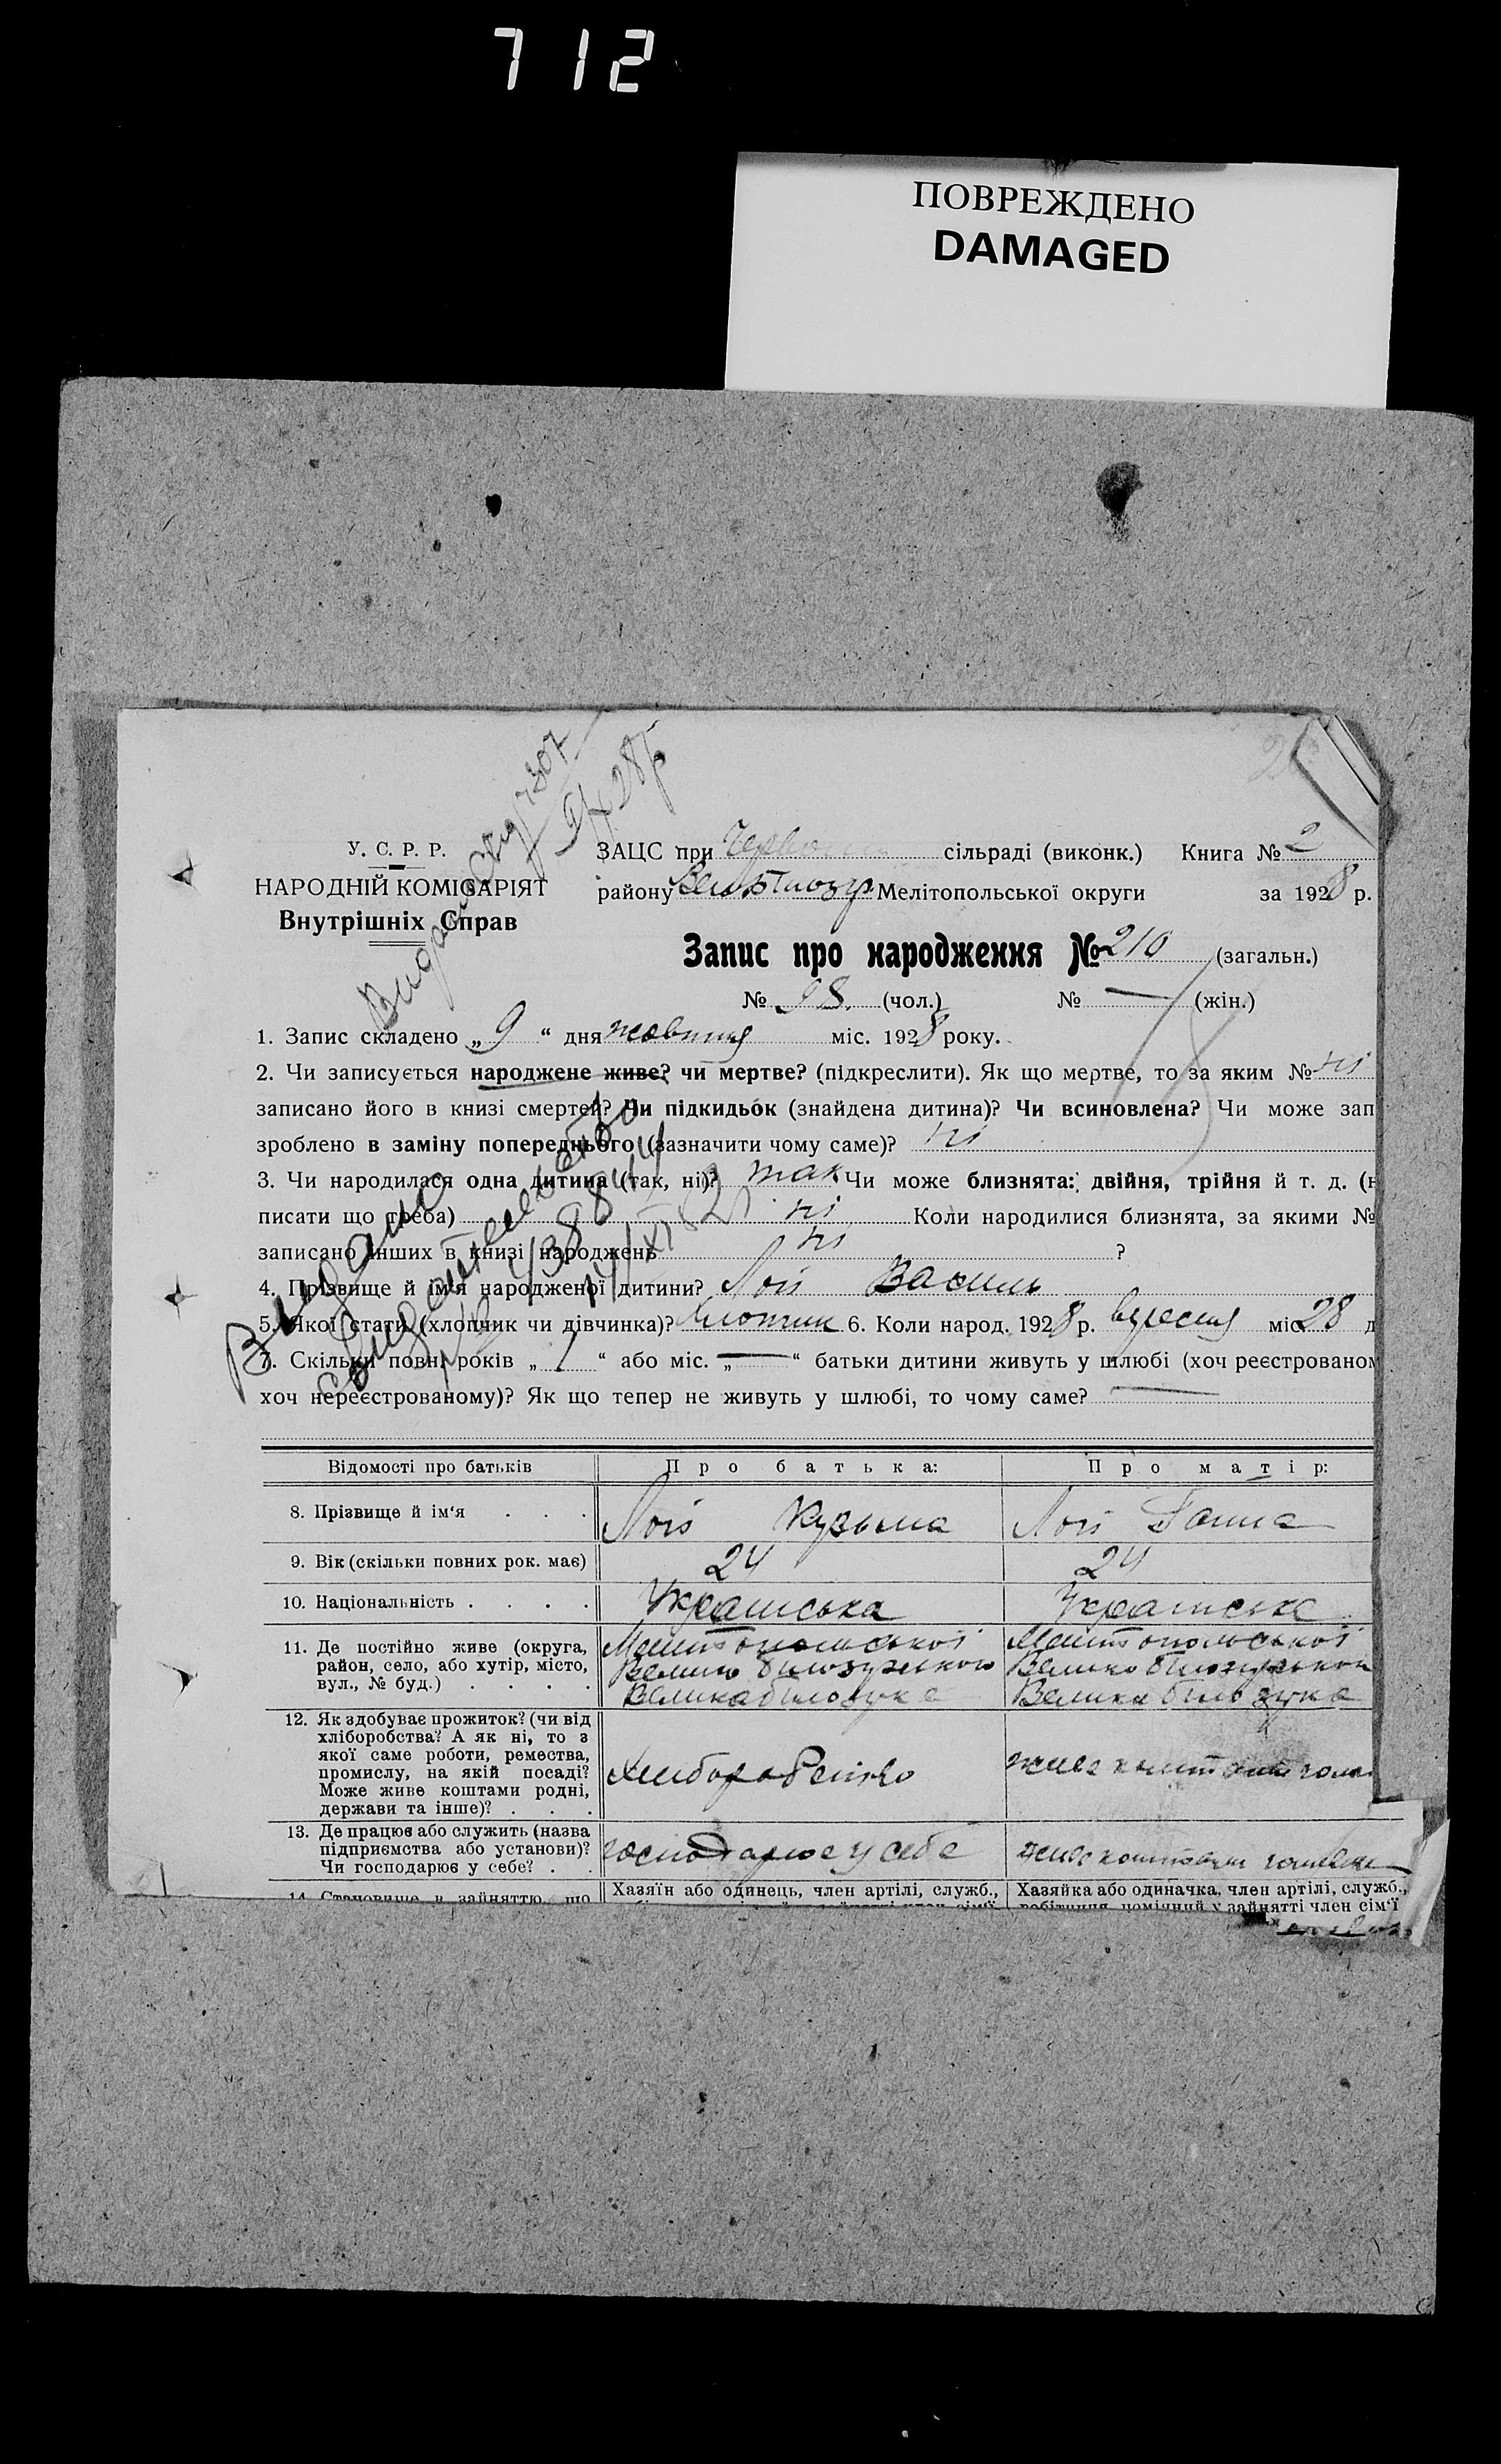 712
ПОВРЕЖДЕНО
DAMAGED
У. С. Р. Р.
НАРОДНІЙ КОМІСАРІЯТ
Внутрішніх Справ
ЗАЦС при сільраді (виконк.) Книга № 2
району Мелітопольської округи за 1928 р.
Запис про народження № 210 (загальн.)
№ 98. (чол.) № — (жін.)
1. Запис складено „ 9 “ дня жовтня міс. 1928 року.
2. Чи записується народжене живе? чи мертве? (підкреслити). Як що мертве, то за яким № ні
записано його в книзі смертей? Чи підкидьок (знайдена дитина)? Чи всиновлена? Чи може зап
зроблено в заміну попереднього (зазначити чому саме)? ні
3. Чи народилася одна дитина (так, ні)? так Чи може близнята: двійня, трійня й т. д. (н
писати що треба) ні Коли народилися близнята, за якими №
записано інших в книзі народжень ні ?
4. Прізвище й ім'я народженої дитини? Лой Василь
5. Якої стати (хлопчик чи дівчинка)? хлопчик 6. Коли народ. 1928 р. вересня міс. 28 д
7. Скільки повн. років „ 1 “ або міс. „ — “ батьки дитини живуть у шлюбі (хоч реєстрованом
хоч нереєстрованому)? Як що тепер не живуть у шлюбі, то чому саме? —
Видано
свидетельство
Відомості про батьків Про батька: Про матір:
8. Прізвище й ім'я . . . Лой Кузьма Лой Ганна
9. Вік (скільки повних рок. має) 24 24
10. Національність . . . . Українська Українська
11. Де постійно живе (округа, Мелітопольської Мелітопольської
район, село, або хутір, місто, Велико білозерського Велико білозерського
вул., № буд.) . . . . Велика білозерка Велика білозерка
12. Як здобуває прожиток? (чи від
хліборобства? А як ні, то з
якої саме роботи, ремества,
промислу, на якій посаді? Хліборобство живе коштами
Може живе коштами родні,
держави та інше)? . . .
13. Де працює або служить (назва
підприємства або установи)? господарює у себе живе коштами
Чи господарює у себе? . .
14. Становище в зайняттю, що Хазяїн або одинець, член артілі, служб., Хазяйка або одиначка, член артілі, служб.,
робітниця, помічний у зайнятті член сім'ї